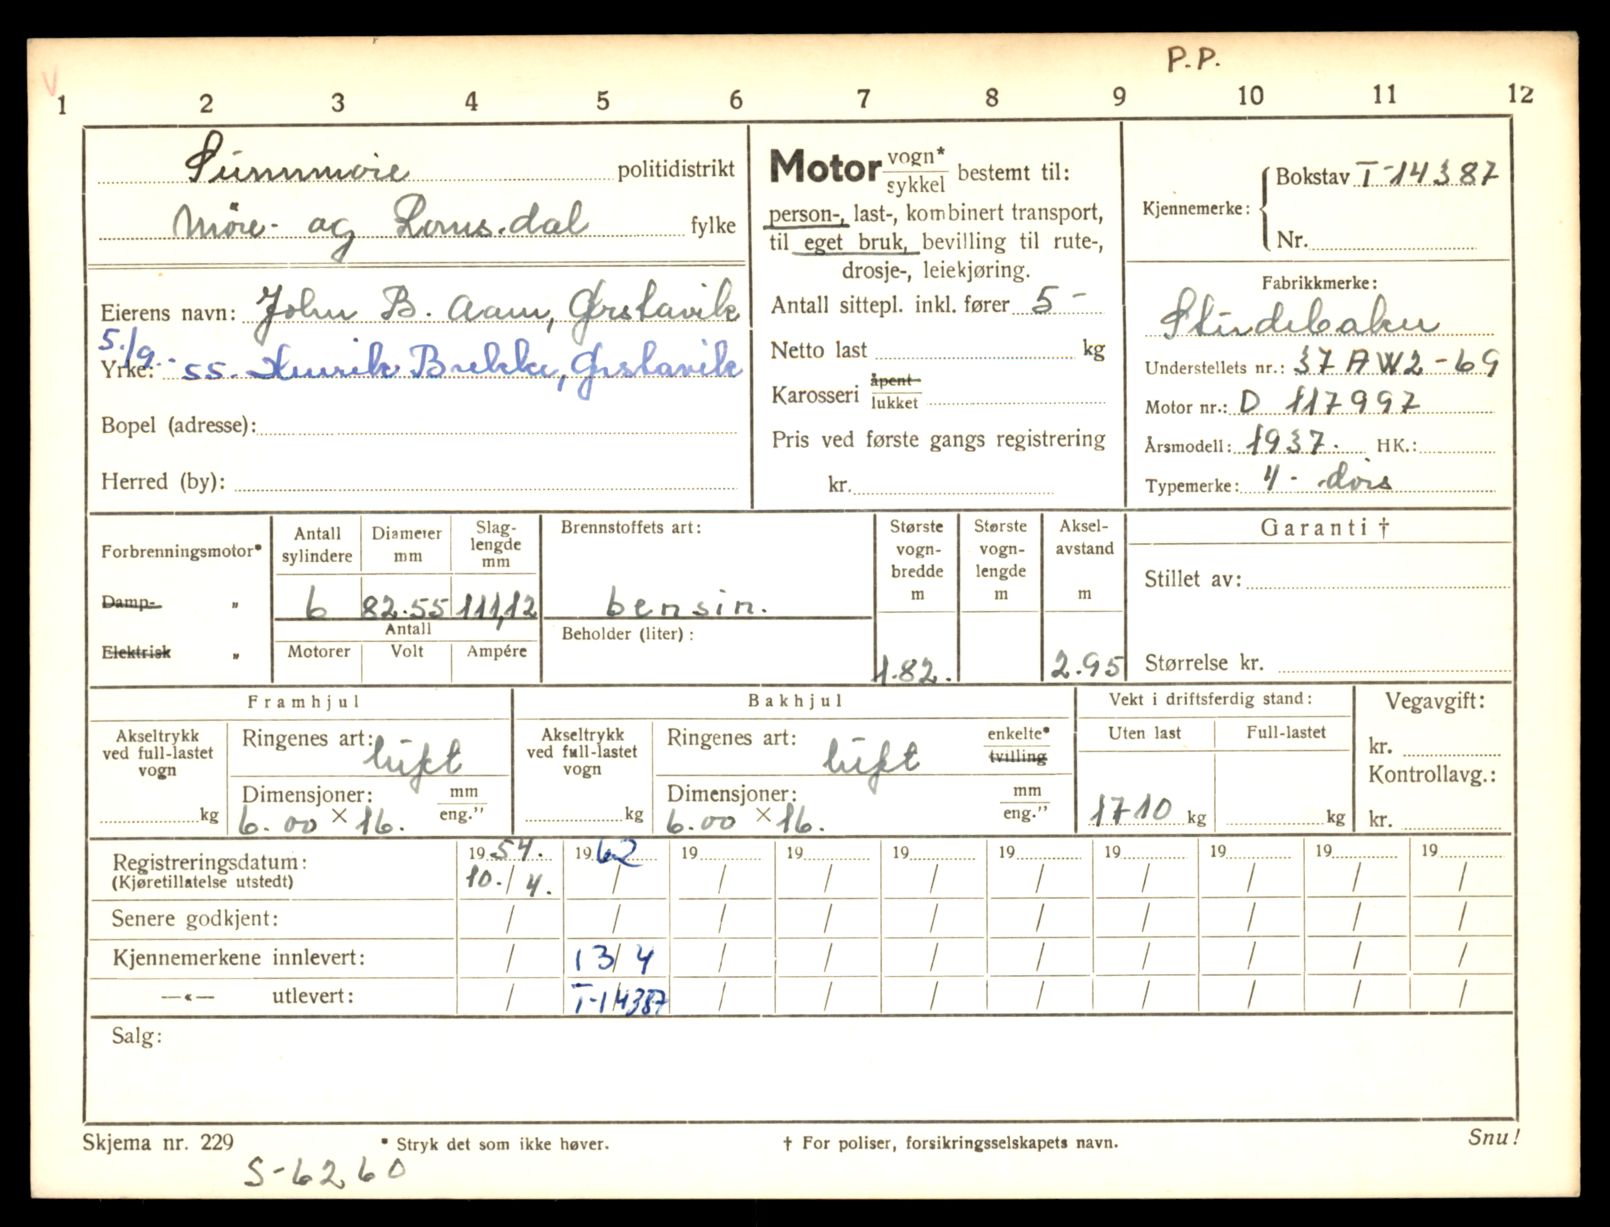 P.P.
V
1 2 3 4 5 6 7 8 9 10 11 12
Sunnmøre politidistrikt
Møre- og Romsdal fylke
Eierens navn: John B. Aam, Ørstavik
5./9.-
Yrke: 55. Henrik Brekke, Ørstavik
Bopel (adresse):
Herred (by):
Motor vogn* / sykkel bestemt til:
person-, last-, kombinert transport,
til eget bruk, bevilling til rute-,
drosje-, leiekjøring.
Antall sittepl. inkl. fører 5 -
Netto last kg
Karosseri åpent / lukket
Pris ved første gangs registrering
kr.
Kjennemerke: Bokstav T-14387
Nr.
Fabrikkmerke:
Studebaker
Understellets nr.: 37 A W2-69
Motor nr.: D 117997
Årsmodell: 1937. HK.:
Typemerke: 4 - dørs
Forbrenningsmotor*
Damp- "
Elektrisk "
Antall sylindere
Diameter mm
Slag-lengde mm
6 82.55 111,12
Antall
Motorer Volt Ampére
Brennstoffets art:
bensin.
Beholder (liter):
Største vogn-bredde m
1.82.
Største vogn-lengde m
Aksel-avstand m
2.95
Garanti †
Stillet av:
Størrelse kr.
Framhjul
Akseltrykk ved full-lastet vogn
kg
Ringenes art: luft
Dimensjoner: mm / eng."
6.00 × 16.
Bakhjul
Akseltrykk ved full-lastet vogn
kg
Ringenes art: luft
enkelte* / tvilling
Dimensjoner: mm / eng."
6.00 × 16.
Vekt i driftsferdig stand:
Uten last Full-lastet
1710 kg kg
Vegavgift:
kr.
Kontrollavg.:
kr.
Registreringsdatum: 19 54. 19 62 19 19 19 19 19 19 19 19
(Kjøretillatelse utstedt) 10. / 4. / / / / / / / / /
Senere godkjent: / / / / / / / / / /
Kjennemerkene innlevert: / 13/4 / / / / / / / /
—«— utlevert: / T-14387 / / / / / / / /
Salg:
Skjema nr. 229
* Stryk det som ikke høver.
† For poliser, forsikringsselskapets navn.
Snu!
S-6260